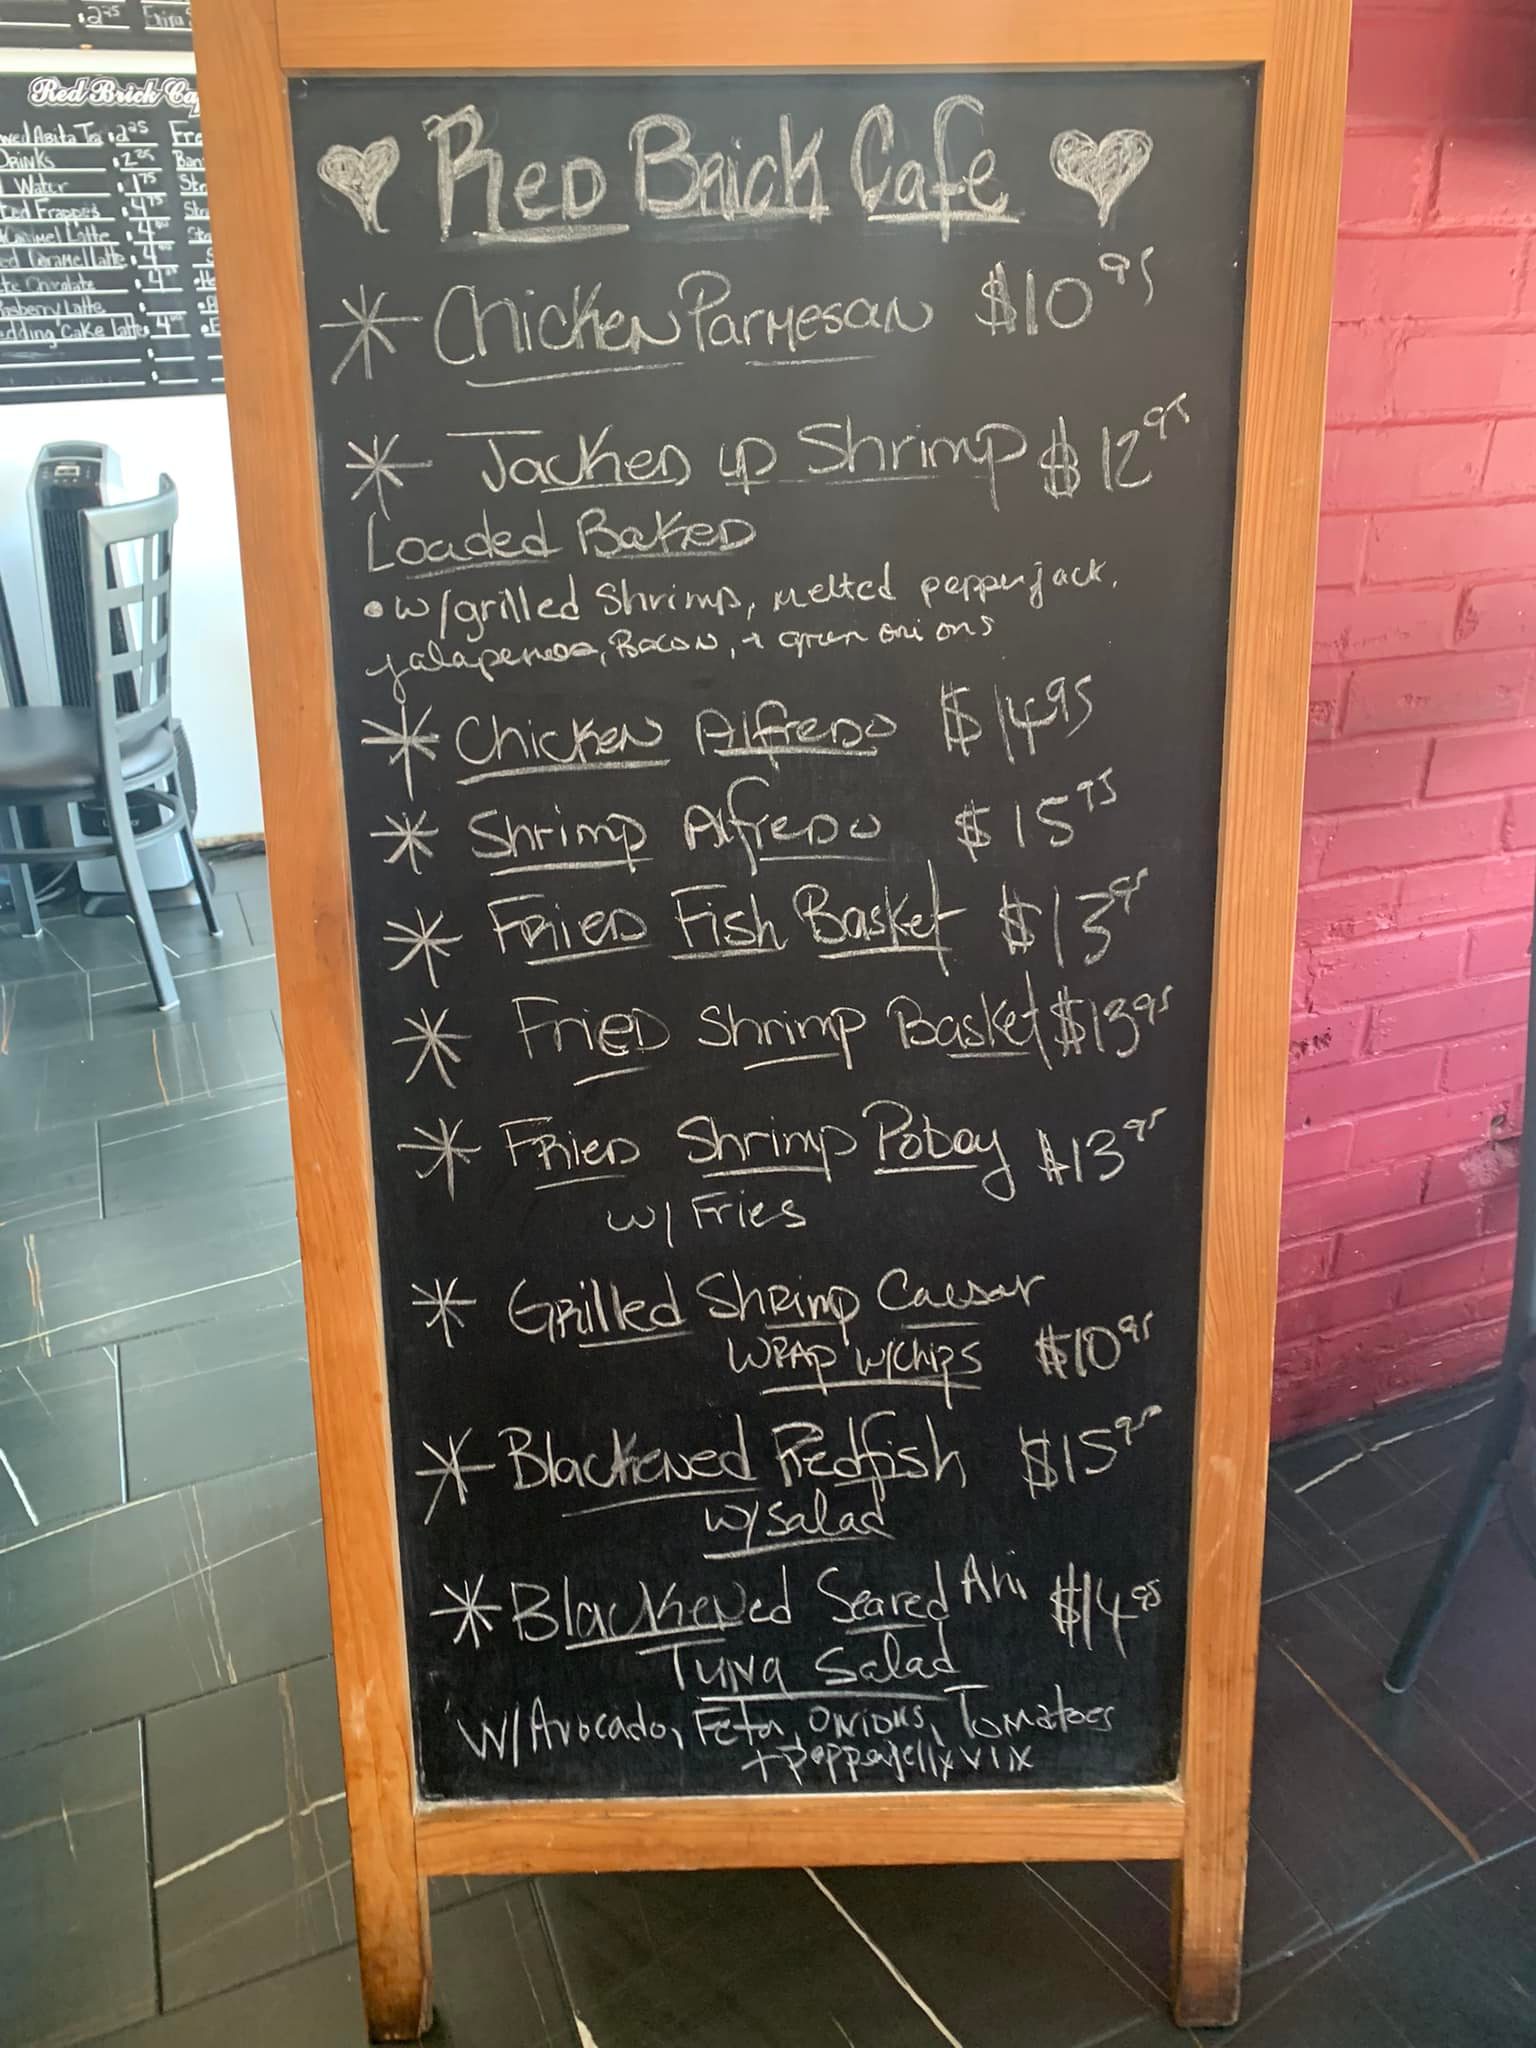 2.25 Extra
Red Brick Caf
wed Abita Tea $2.25 Fre
Drinks 2.25 Ban
Water 1.75 Str
ted Frappes 4.75 Str
Caramel Latte 4
ed Caramel Latte 4
te Chocolate 4
asberry Latte
edding Cake Latte 4
Red Brick Cafe
Chicken Parmesan $10.95
Jacked up Shrimp $12.95
Loaded Baked
• w/grilled Shrimp, melted pepperjack,
jalapenos, Bacon, + green onions
Chicken Alfredo $14.95
Shrimp Alfredo $15.95
Fried Fish Basket $13.95
Fried Shrimp Basket $13.95
Fried Shrimp Poboy $13.95
w/ Fries
Grilled Shrimp Caesar
Wrap w/chips $10.95
Blackened Redfish $15.95
w/salad
Blackened Seared Ahi $14.95
Tuna Salad
w/Avocado, Feta, onions, Tomatoes
+ pepperjelly vin